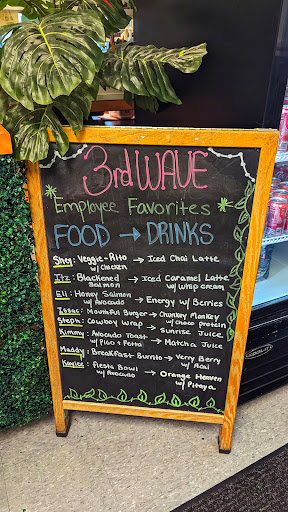 3rd WAVE
* Employee Favorites *
FOOD → DRINKS
Shey: Veggie-Rito → Iced Chai Latte
w/ chicken
Itz: Blackened → Iced Caramel Latte
Salmon w/ Wrap cream
Eli: Honey Salmon → Energy w/ Berries
w/ Avocado
Isaac: Mouthful Burger → Chunkey Monkey
w/ choco protein
Steph: Cowboy Wrap → Sunrise Juice
Kimmy: Avocado Toast → Matcha Juice
w/ Pico + Fetta
Maddy: Breakfast Burrito → Verry Berry
w/ Acai
Fiesta Bowl → Orange Heaven
w/ Avocado w/ Pitaya